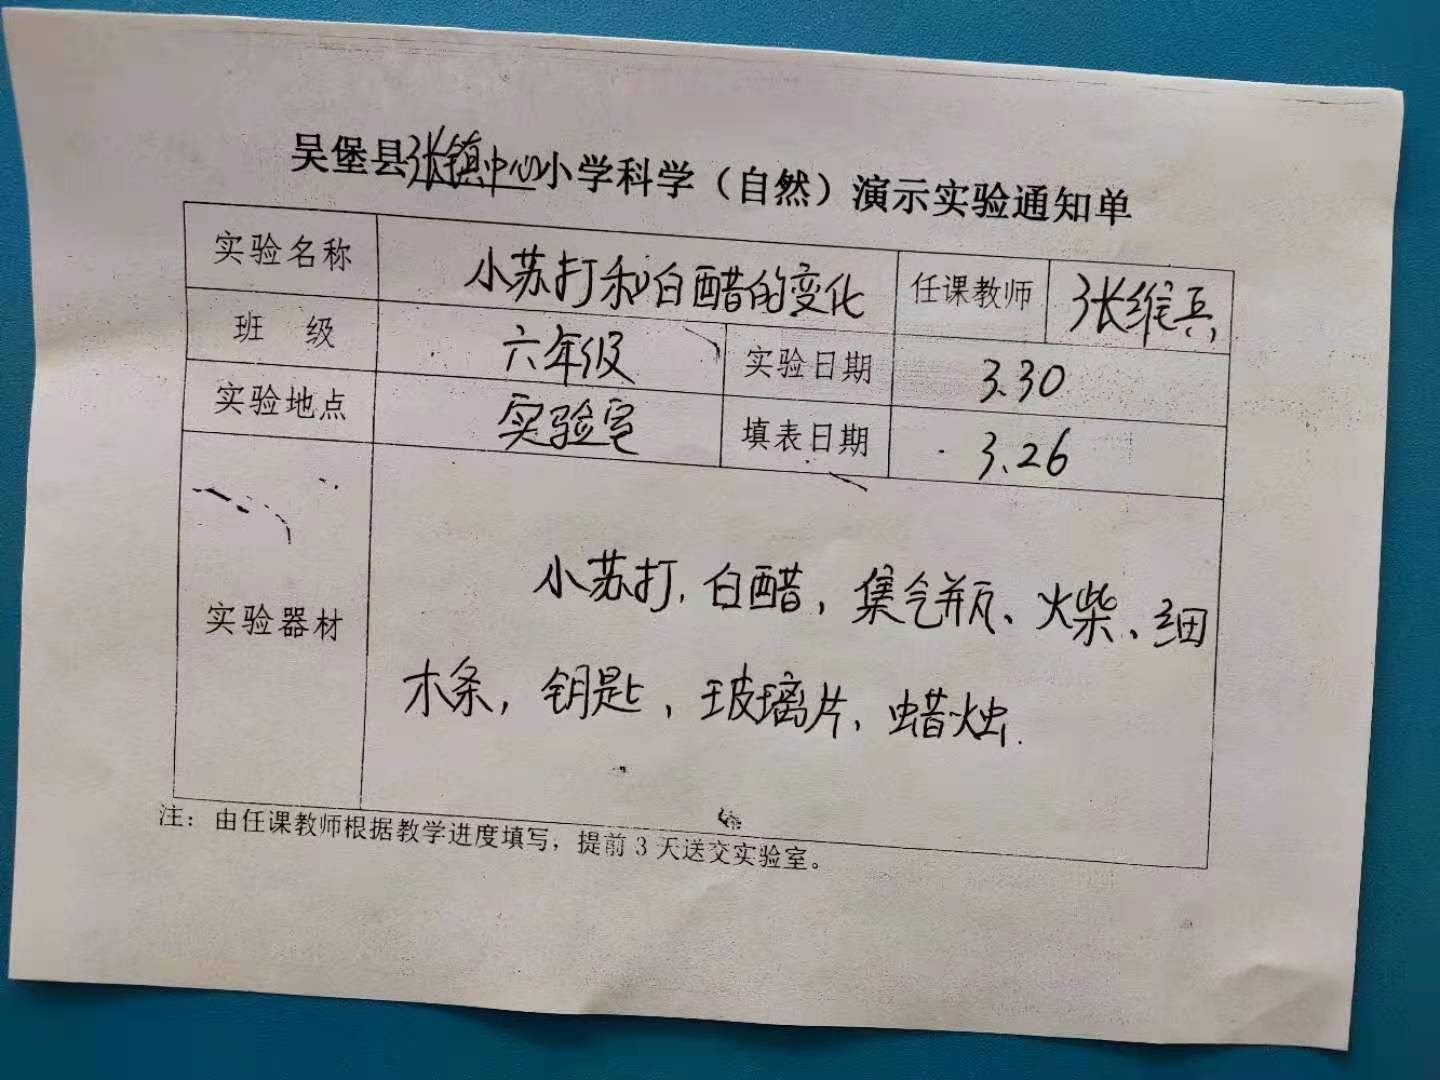 吴堡县张镇中心小学科学（自然）演示实验通知单
实验名称 小苏打和白醋的变化 任课教师 张维兵
班 级 六年级 实验日期 3.30
实验地点 实验室 填表日期 3.26
实验器材
小苏打，白醋，集气瓶、火柴、细
木条，钥匙，玻璃片，蜡烛.
注：由任课教师根据教学进度填写，提前3天送交实验室。